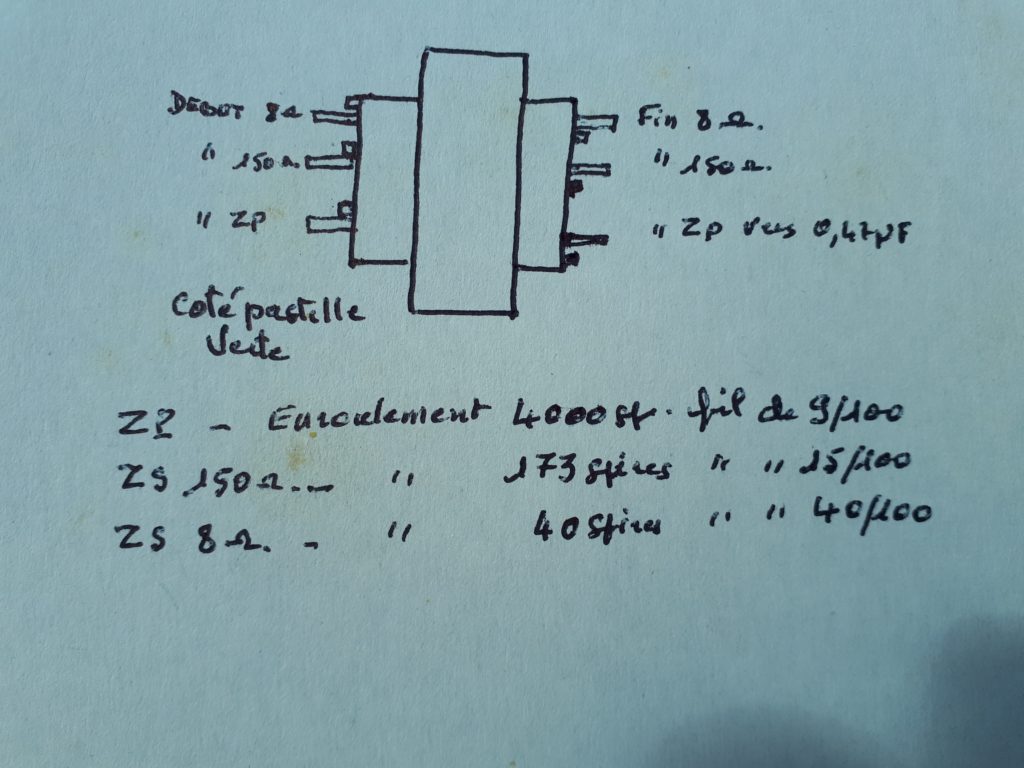 DEBUT 8Ω Fin 8Ω.
" 150Ω " 150Ω.
" ZP " ZP vers 0,47µF
Coté pastille
Verte
ZP - Enroulement 4000 sp. fil de 9/100
ZS 150Ω... " 173 spires " " 15/100
ZS 8Ω. - " 40 spires " " 40/100